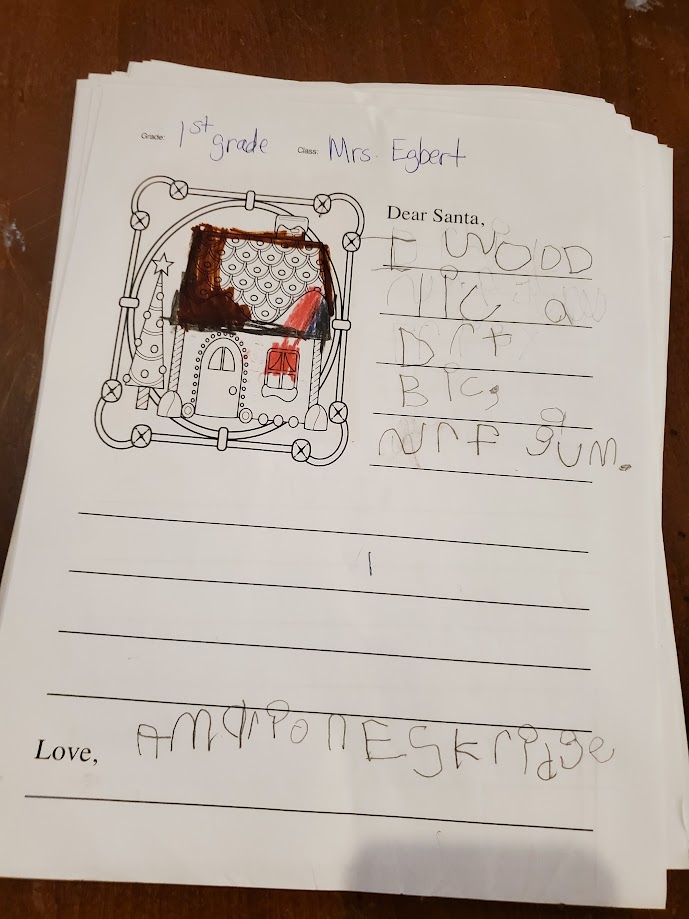 Grade: 1st grade Class: Mrs. Egbert
Dear Santa,
I WOOD
lic a
Drt
Bic,
Nrf gum.
Love,
ESkridge